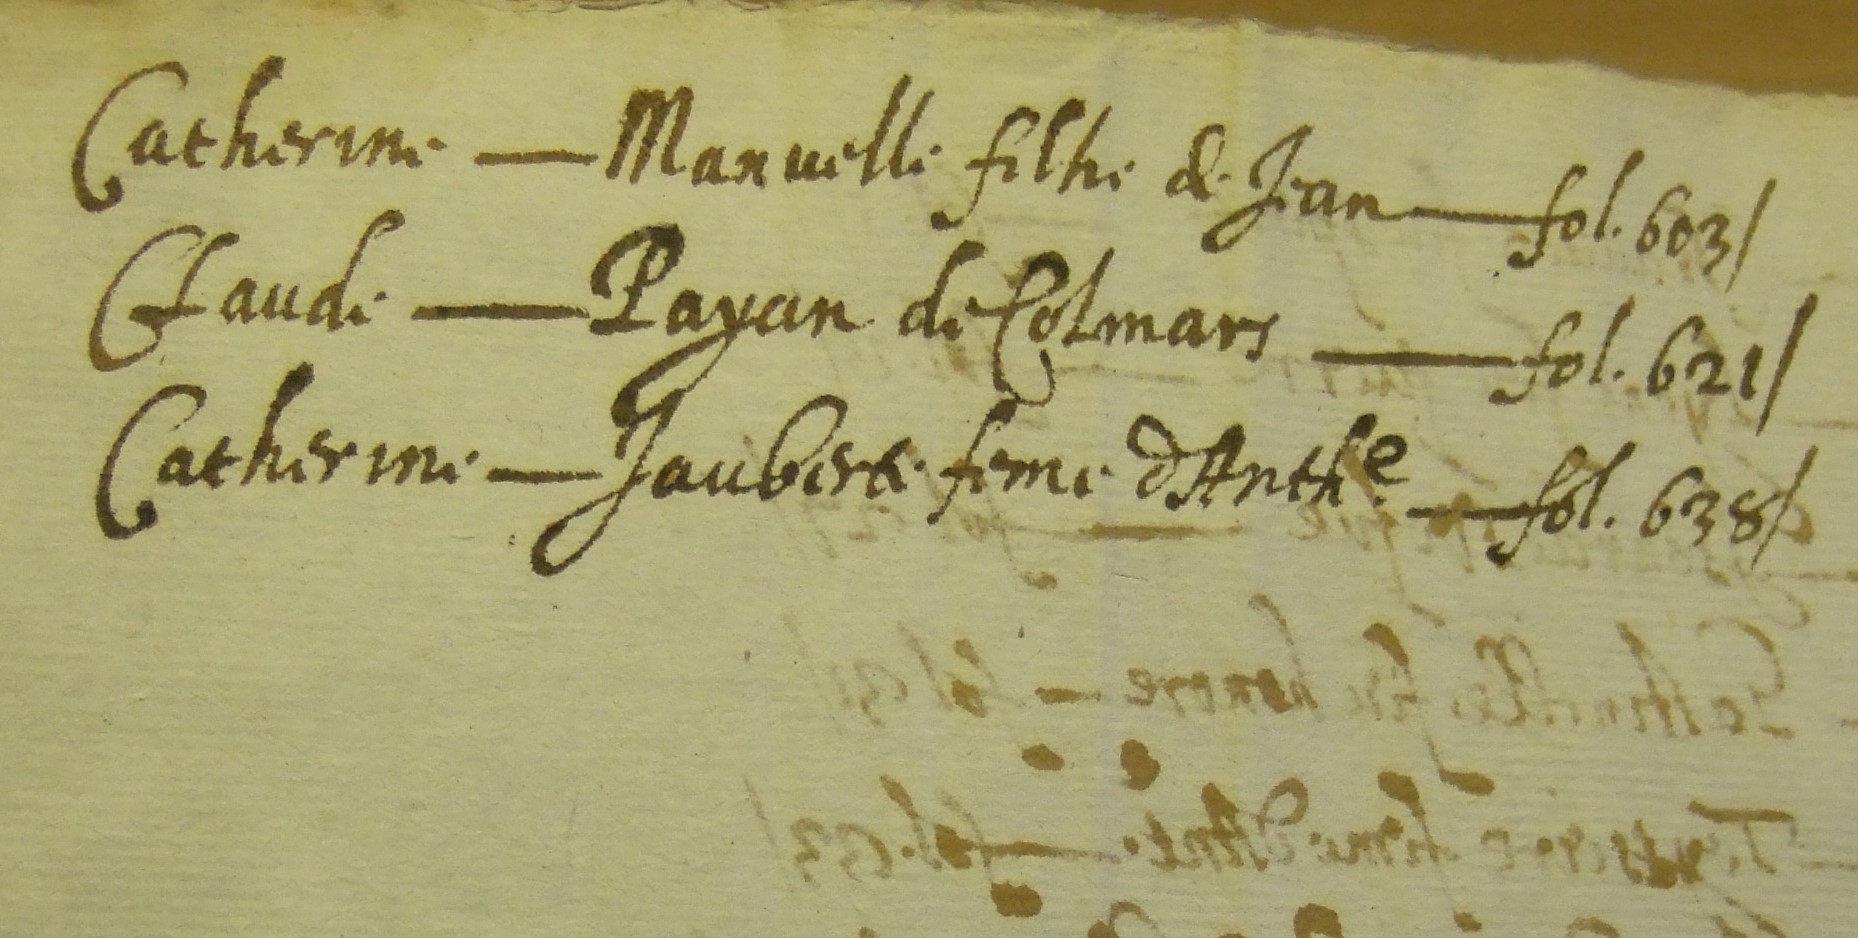 Catherine — Manuelle filhe de Jean — fol. 603/
Claude — Payan de Colmars — fol. 621/
Catherine — Jauberte feme d'Anthe — fol. 638/